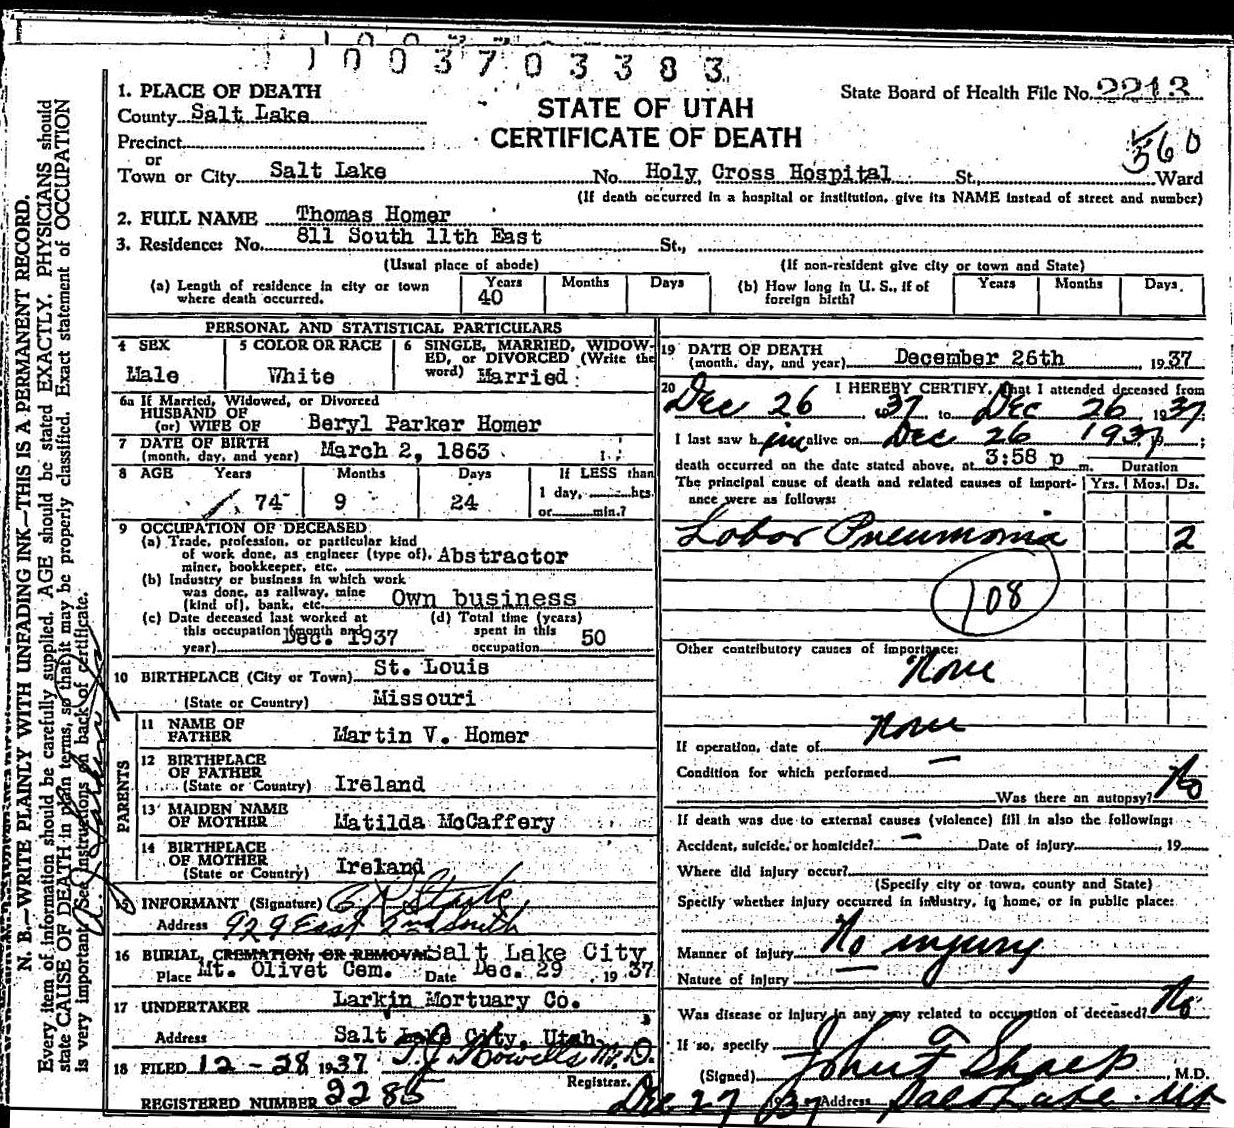 1003703383
1. PLACE OF DEATH
County Salt Lake
STATE OF UTAH
CERTIFICATE OF DEATH
State Board of Health File No. 2213
560
Precinct
or
Town or City Salt Lake No. Holy Cross Hospital St., Ward
(If death occurred in a hospital or institution, give its NAME instead of street and number)
2. FULL NAME Thomas Homer
3. Residence: No. 811 South 11th East St.,
(Usual place of abode) (If non-resident give city or town and State)
(a) Length of residence in city or town where death occurred. Years 40 Months Days
(b) How long in U. S., if of foreign birth? Years Months Days.
PERSONAL AND STATISTICAL PARTICULARS
4 SEX Male
5 COLOR OR RACE White
6 SINGLE, MARRIED, WIDOWED, or DIVORCED (Write the word) Married
6a If Married, Widowed, or Divorced
HUSBAND OF
(or) WIFE OF Beryl Parker Homer
7 DATE OF BIRTH
(month, day, and year) March 2, 1863
8 AGE Years Months Days If LESS than
74 9 24 1 day, hrs.
or min.?
9 OCCUPATION OF DECEASED
(a) Trade, profession, or particular kind
of work done, as engineer (type of), Abstractor
miner, bookkeeper, etc.
(b) Industry or business in which work
was done, as railway, mine
(kind of), bank, etc. Own business
(c) Date deceased last worked at
this occupation (month and
year) Dec. 1937
(d) Total time (years)
spent in this
occupation 50
10 BIRTHPLACE (City or Town) St. Louis
(State or Country) Missouri
PARENTS
11 NAME OF
FATHER Martin V. Homer
12 BIRTHPLACE
OF FATHER
(State or Country) Ireland
13 MAIDEN NAME
OF MOTHER Matilda McCaffery
14 BIRTHPLACE
OF MOTHER
(State or Country) Ireland
15 INFORMANT (Signature)
Address 929 East 2nd South
16 BURIAL, CREMATION, OR REMOVAL Salt Lake City
Place Mt. Olivet Cem. Date Dec. 29, 1937
17 UNDERTAKER Larkin Mortuary Co.
Address Salt Lake City, Utah
18 FILED 12-28 1937 T.J. Howells M.D.
Registrar.
REGISTERED NUMBER 2285
19 DATE OF DEATH
(month, day, and year) December 26th 1937
20 I HEREBY CERTIFY, that I attended deceased from
Dec 26 1937 to Dec 26 1937
I last saw him alive on Dec 26 1937;
death occurred on the date stated above, at 3:58 p m. Duration
The principal cause of death and related causes of importance were as follows: Yrs. Mos. Ds.
Lobar Pneumonia 2
108
Other contributory causes of importance:
None
None
If operation, date of
Condition for which performed
Was there an autopsy? No
If death was due to external causes (violence) fill in also the following:
Accident, suicide, or homicide? Date of injury 19
Where did injury occur?
(Specify city or town, county and State)
Specify whether injury occurred in industry, in home, or in public place:
Manner of injury No injury
Nature of injury
Was disease or injury in any way related to occupation of deceased? No
If so, specify
(Signed) John F Sharp, M.D.
Dec 27 1937 Address Salt Lake. Ut
N. B.—WRITE PLAINLY WITH UNFADING INK—THIS IS A PERMANENT RECORD.
Every item of information should be carefully supplied. AGE should be stated EXACTLY. PHYSICIANS should
state CAUSE OF DEATH in plain terms, so that it may be properly classified. Exact statement of OCCUPATION
is very important. (See instructions on back of certificate.